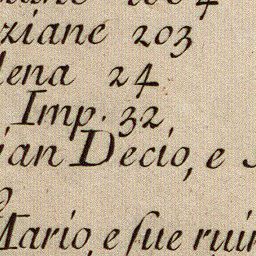 ziane 203
lena 24
Imp. 32
ian Decio, e
Mario, e ſue ruin